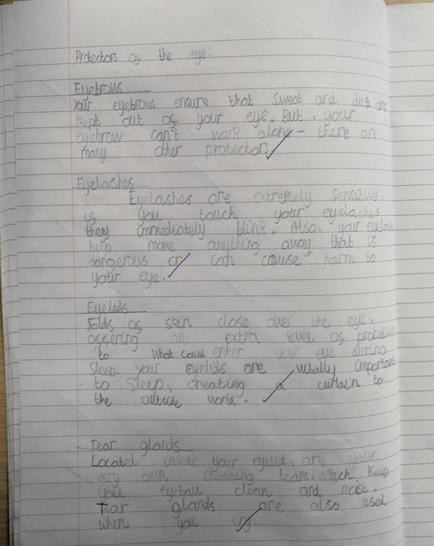 Protectors of the eye:
Eyebrows
Your eyebrows ensure that sweat and dust are
kept out of your eye. But, your
eyebrow can't work alone - there are
many other protectors.
Eyelashes
Eyelashes are extremely sensitive,
if you touch your eyelashes
they immediately blink. Also, your eyelash
help move anything away that is
dangerous or can cause harm to
your eye.
Eyelids
Folds of skin close over the eye,
offering an extra level of protective
to what could enter your eye during
sleep. your eyelids are vitally important
to sleep, creating a curtain to
the outside world.
Tear glands
Located inside your eyelid, are your
very own cleaning team, which keep
your eyeball clean and moist.
Tear glands are also used
when you cry.